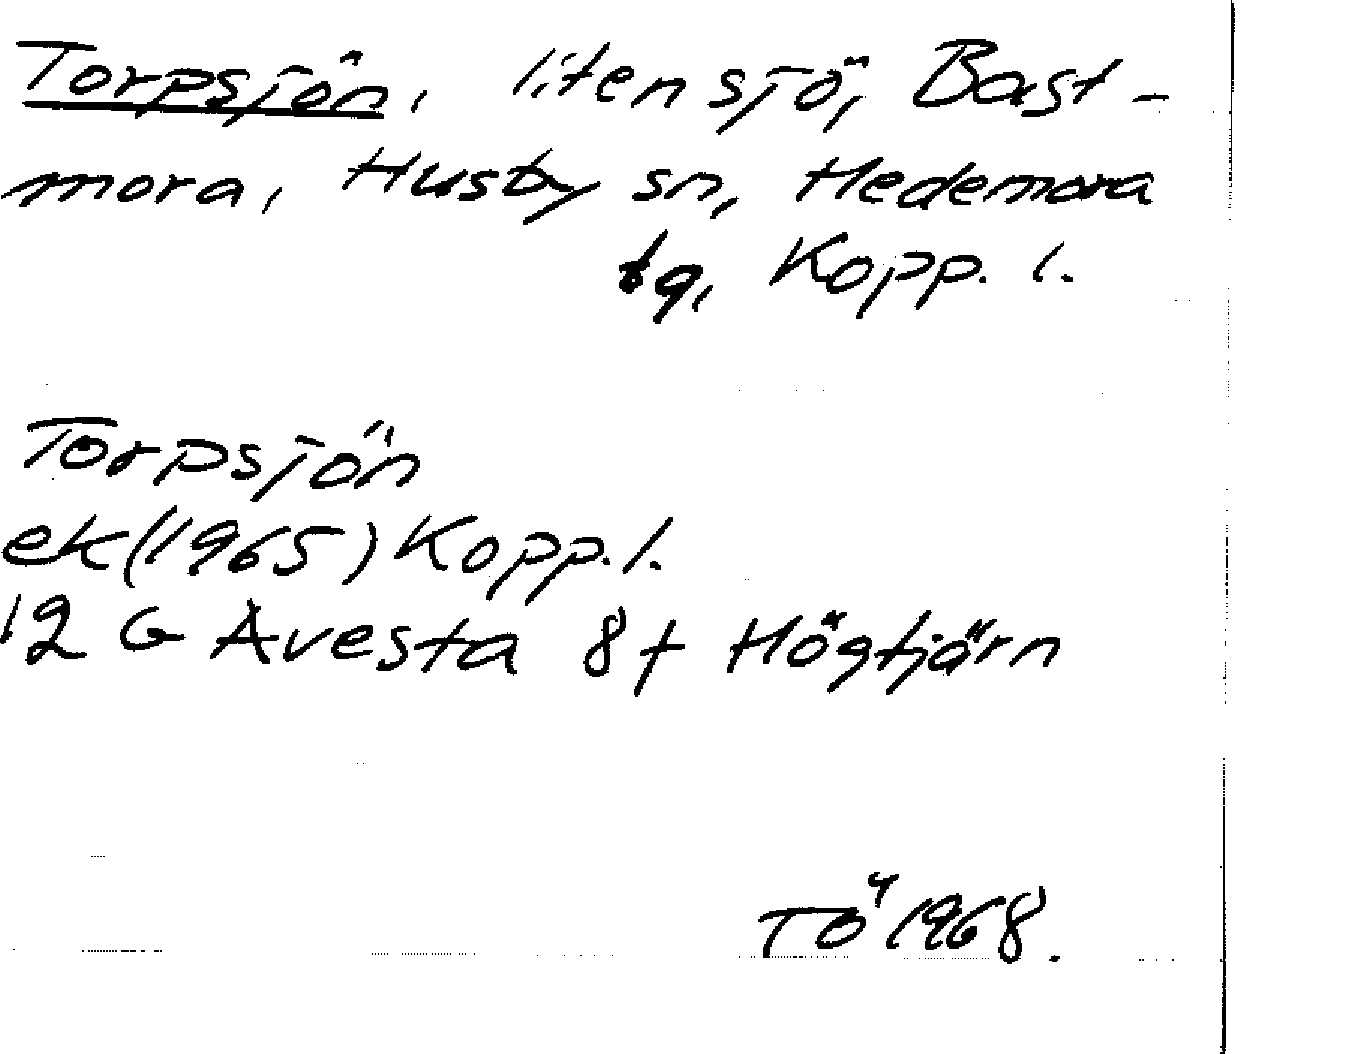 Torpsjön, liten sjö, Bast-
mora, Husby sn, Hedemora
tg, Kopp. l.
Torpsjön
ek (1965) Kopp. l.
12 G Avesta 8f Högtjärn
TÖ 1968.